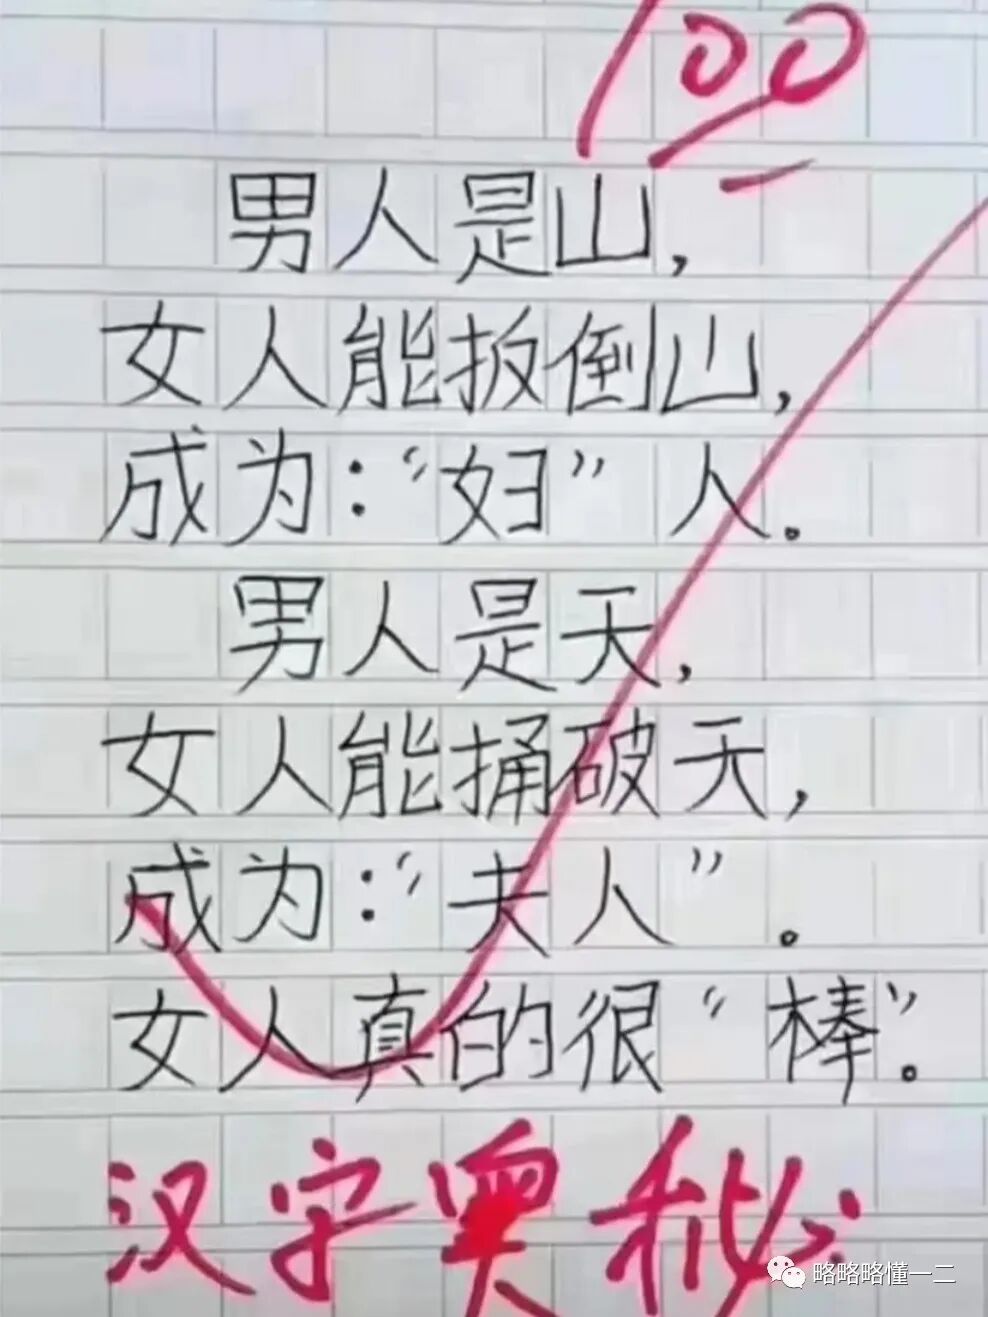 100
男人是山，
女人能扳倒山，
成为：“妇”人。
男人是天，
女人能捅破天，
成为：“夫人”。
女人真的很“棒”。
汉字奥秘
略略略懂一二